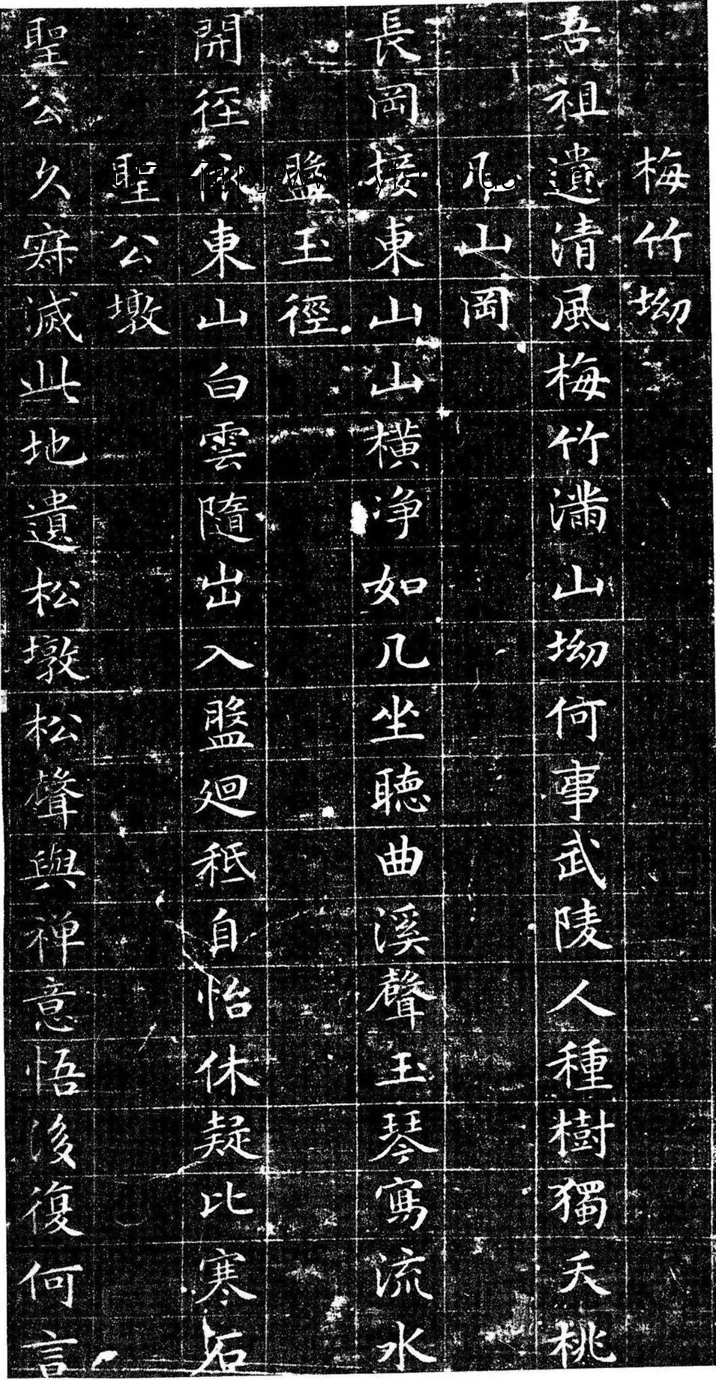 梅竹坳
吾祖遺清風梅竹滿山坳何事武陵人種樹獨夭桃
几山岡
長岡接東山山橫净如几坐聽曲溪聲玉琴寫流水
盤玉徑
開徑依東山白雲隨出入盤廻秖自怡休疑比寒石
聖公墩
聖公久寂滅此地遺松墩松聲與禅意悟後復何言